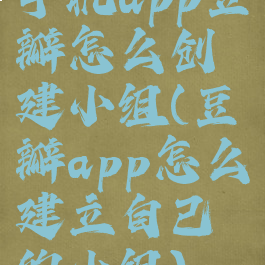 手机app豆
瓣怎么创
建小组(豆
瓣app怎么
建立自己
的小组)